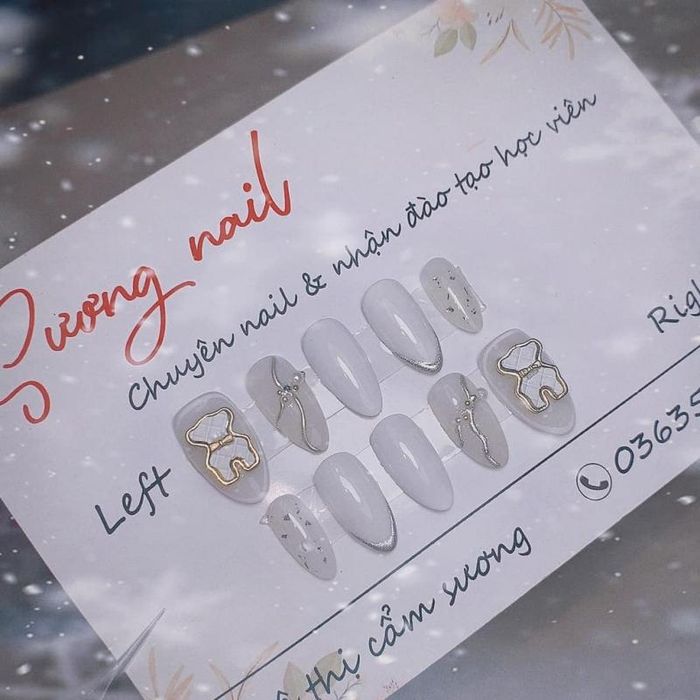 Sương nail
Chuyên nail & nhận đào tạo học viên
Left
Righ
03635
thị cẩm sương